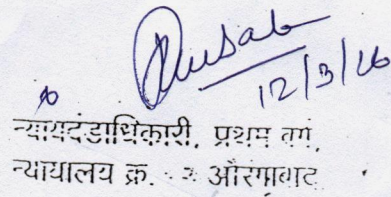 12/3/26
न्यायदंडाधिकारी, प्रथम वर्ग,
न्यायालय क्र. औरंगाबाद